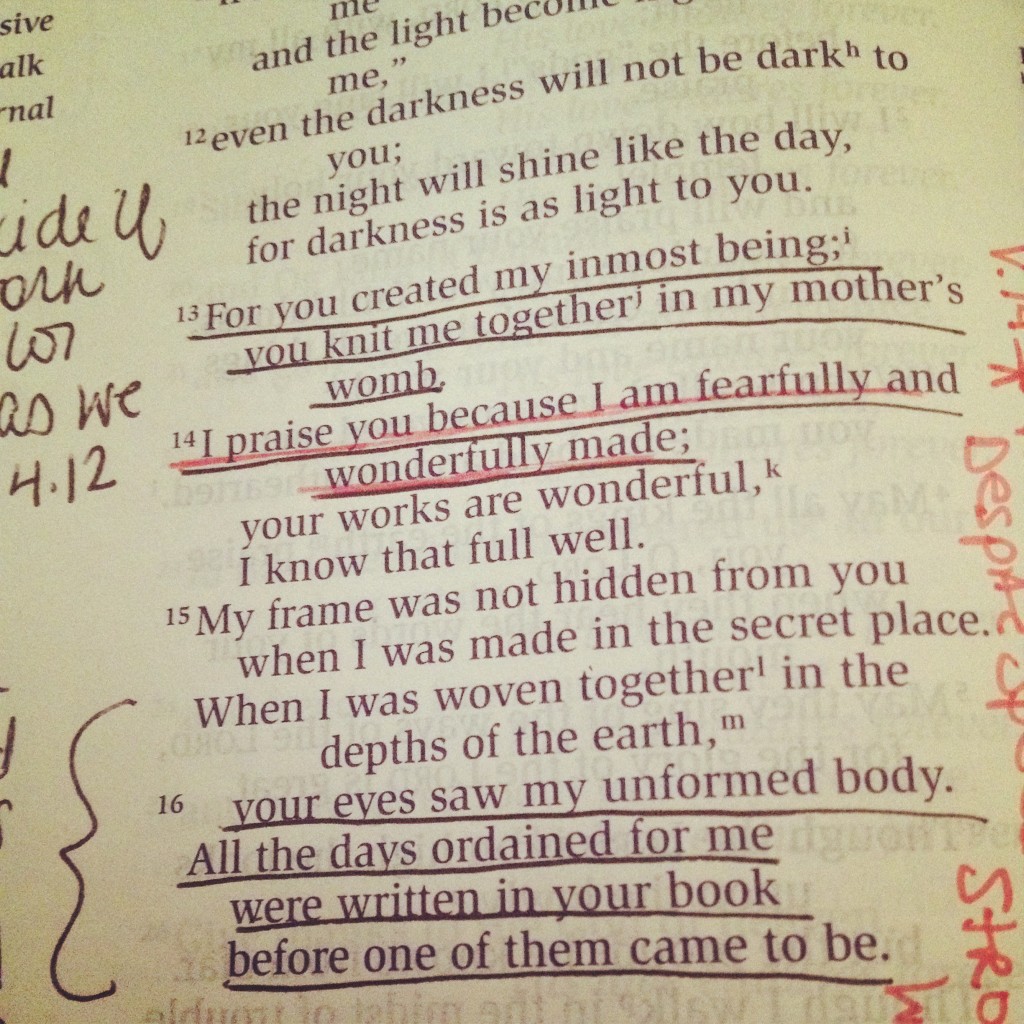 sive
alk
rnal
ide U
ork
as we
4.12
me
and the light become
me,”
¹²even the darkness will not be darkʰ to
you;
the night will shine like the day,
for darkness is as light to you.
¹³For you created my inmost being;ⁱ
you knit me togetherʲ in my mother’s
womb.
¹⁴I praise you because I am fearfully and
wonderfully made;
your works are wonderful,ᵏ
I know that full well.
¹⁵My frame was not hidden from you
when I was made in the secret place.
When I was woven togetherˡ in the
depths of the earth,ᵐ
¹⁶ your eyes saw my unformed body.
All the days ordained for me
were written in your book
before one of them came to be.
V.14